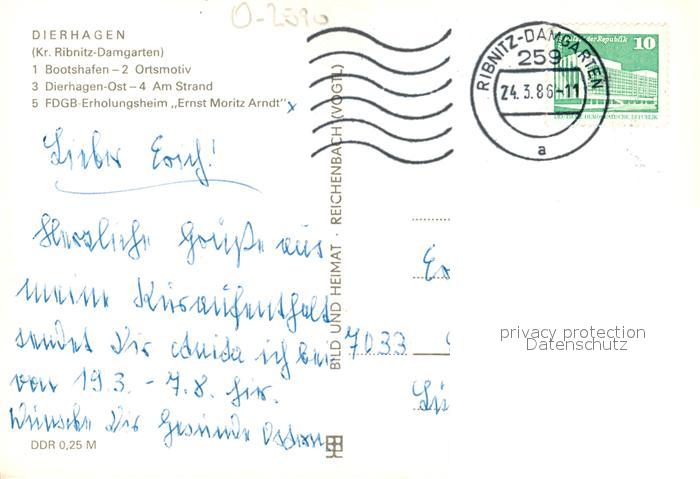 O-2590
DIERHAGEN
(Kr. Ribnitz-Damgarten)
1 Bootshafen – 2 Ortsmotiv
3 Dierhagen-Ost – 4 Am Strand
5 FDGB-Erholungsheim „Ernst Moritz Arndt" x
Lieber Erich!
Herzliche Grüße aus
meinem Kuraufenthalt
sendet Dir ich bei
von 19.3. - 7.8. hier.
Wünsche Dir Gesunde Ostern.
DDR 0,25 M
BILD UND HEIMAT · REICHENBACH (VOGTL)
RIBNITZ-DAMGARTEN
259
24.3.86-11
a
10
DEUTSCHE DEMOKRATISCHE REPUBLIK
7033
privacy protection
Datenschutz